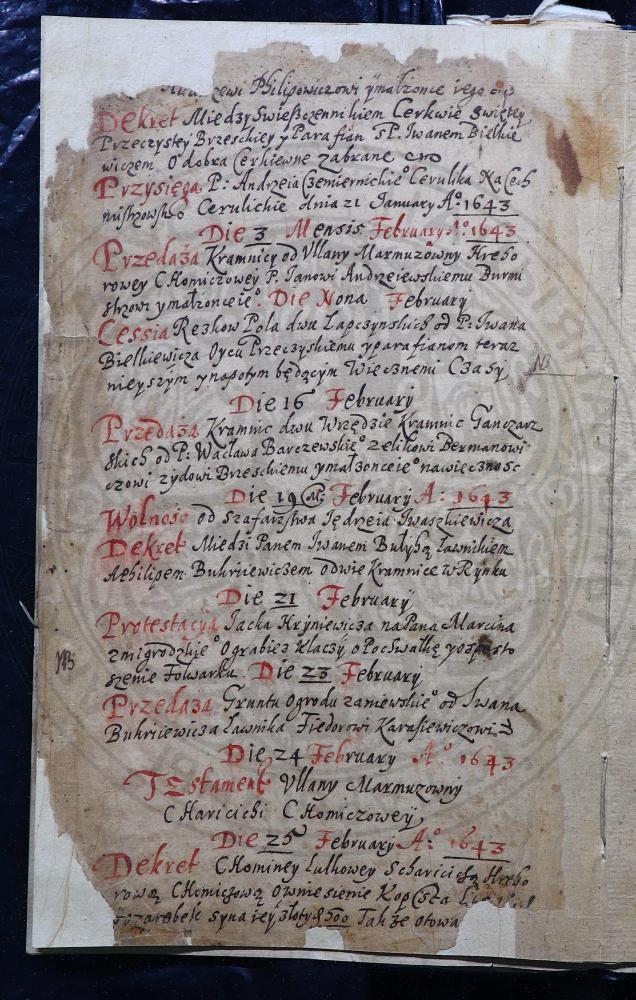 Philipowiczowi ymałzonce iego
Dekret Między Swięszczennikiem Cerkwie Swiętey
Przeczystey Brzeskiey y Parafian sP. Iwanem Bielkie
wiczem O dobra Cerkiewne zabrane
Przysięga P: Andrzeia Czemiernickie° Cerulika Na Cech
mistrzowstwo Cerulickie dnia 21 January A° 1643
Die 3 Mensis February A°: 1643
Przedaża Kramnicy od Vllany Marmuzowny Hrebo
rowey CHomiczowey P. Janowi Andrzeiewskiemu Burmi
strzowi ymałzonceie°. Die Nona February
Cessia Rezkow Pola dwu Lapczynskich od P: Iwana
Bielkiewicza Oycu Przeczyskiemu yparafianom teraz
nieyszym ynapotym będącym Wiecznemi Czasy
NB
Die 16 February
Przedaża Kramnic dwu Wrzędzie Kramnic Ganczarz
skich od P: Wacława Barczewskie° Zelikowi Bermanowi
czowi zydowi Brzeskiemu ymałzonceie° nawieczność
Die 19 February A: 1643
Wolność od Szafarstwa Jędrzeia Iwaszkiewicza
Dekret Miedzi Panem Iwanem Bułyhą Ławnikiem
APhilipem Buhriiewiczem odwie Kramnice w Rynku
Die 21 February
Protestacya Jacka Hryniewicza naPana Marcina
Zmigrodzkie° Ograbież Klaczy o Pochwałkę yospusto
NB
szenie Folwarku. Die 23 February
Przedaża Gruntu Ogrodu zaniewskie° od Iwana
Buhriiewicza Ławnika Fiedorowi Karasiewiczowi
Die 24 February A° 1643
TEstament Vllany Marmuzowny
CHaricichi CHomiczowey
Die 25 February A° 1643
Dekret CHominey Lulkowey Scharicichą Hrebo
rową CHomiczową Owniesienie Kop Sta
zarobek syna iey złotych 500 Takze otowa